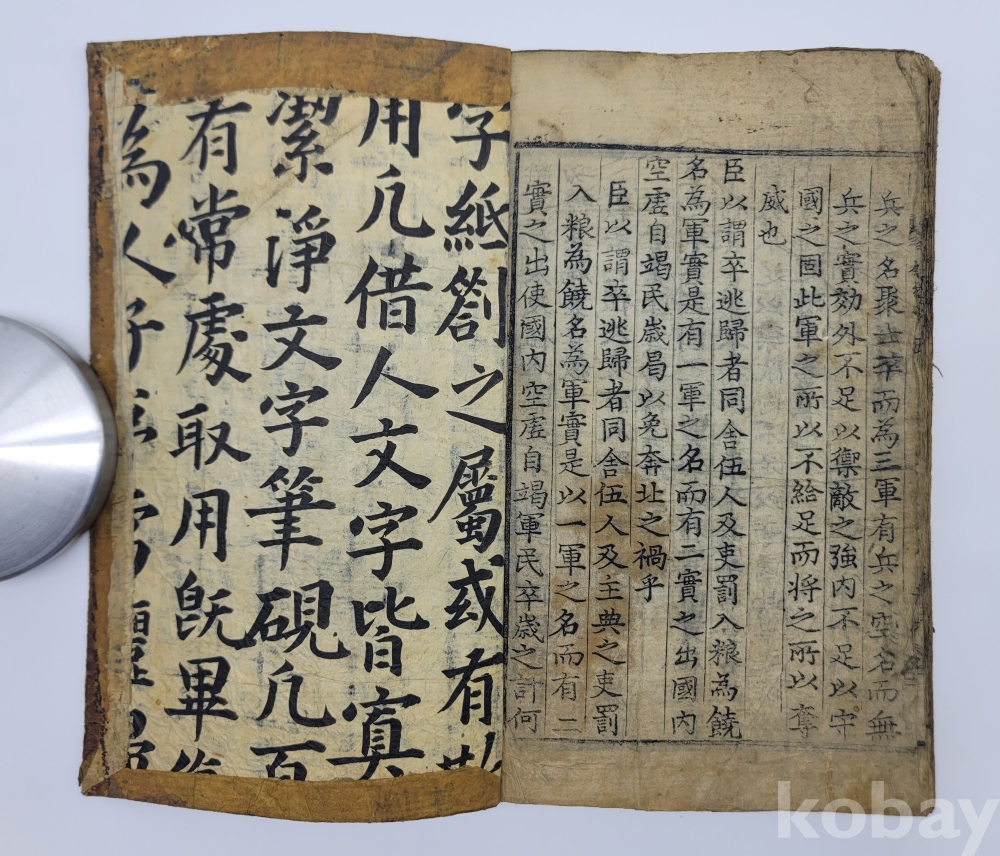 兵之名聚士卒而為三軍有兵之空名而無
兵之實効外不足以禦敵之強内不足以守
國之固此軍之所以不給足而將之所以奪
威也
臣以謂卒逃歸者同舍伍人及吏罰入粮為饒
名為軍實是有一軍之名而有二實之出國内
空虗自竭民歲曷以免奔北之禍乎
臣以謂卒逃歸者同舍伍人及主典之吏罰
入粮為饒名為軍實是以一軍之名而有二
實之出使國内空虗自竭軍民卒歲之計何
字紙劄之屬或有
用凢借人文字皆寘
潔淨文字筆硯凢百
有常處取用旣畢復
為人子
kobay